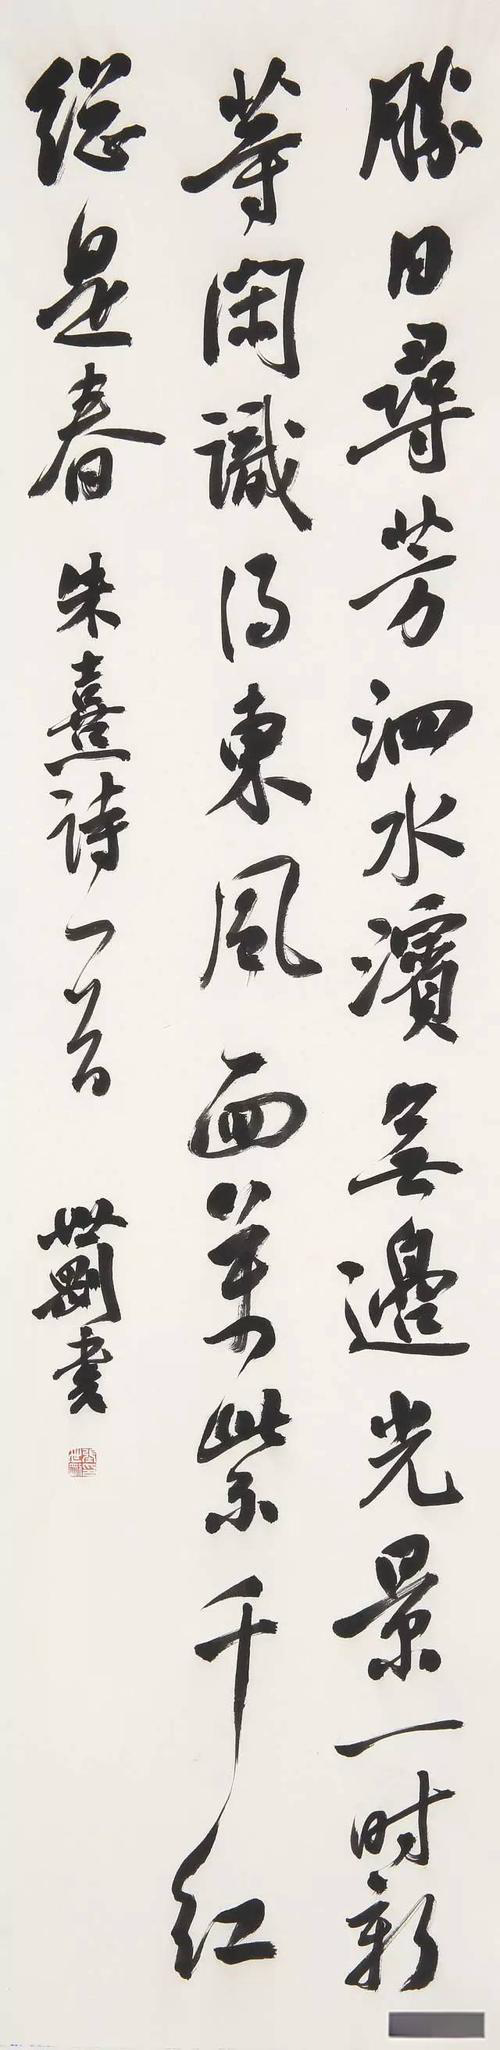 勝日尋芳泗水濱無邊光景一时新
等閑識得東風面萬紫千紅
總是春 朱熹詩一首 世剛書